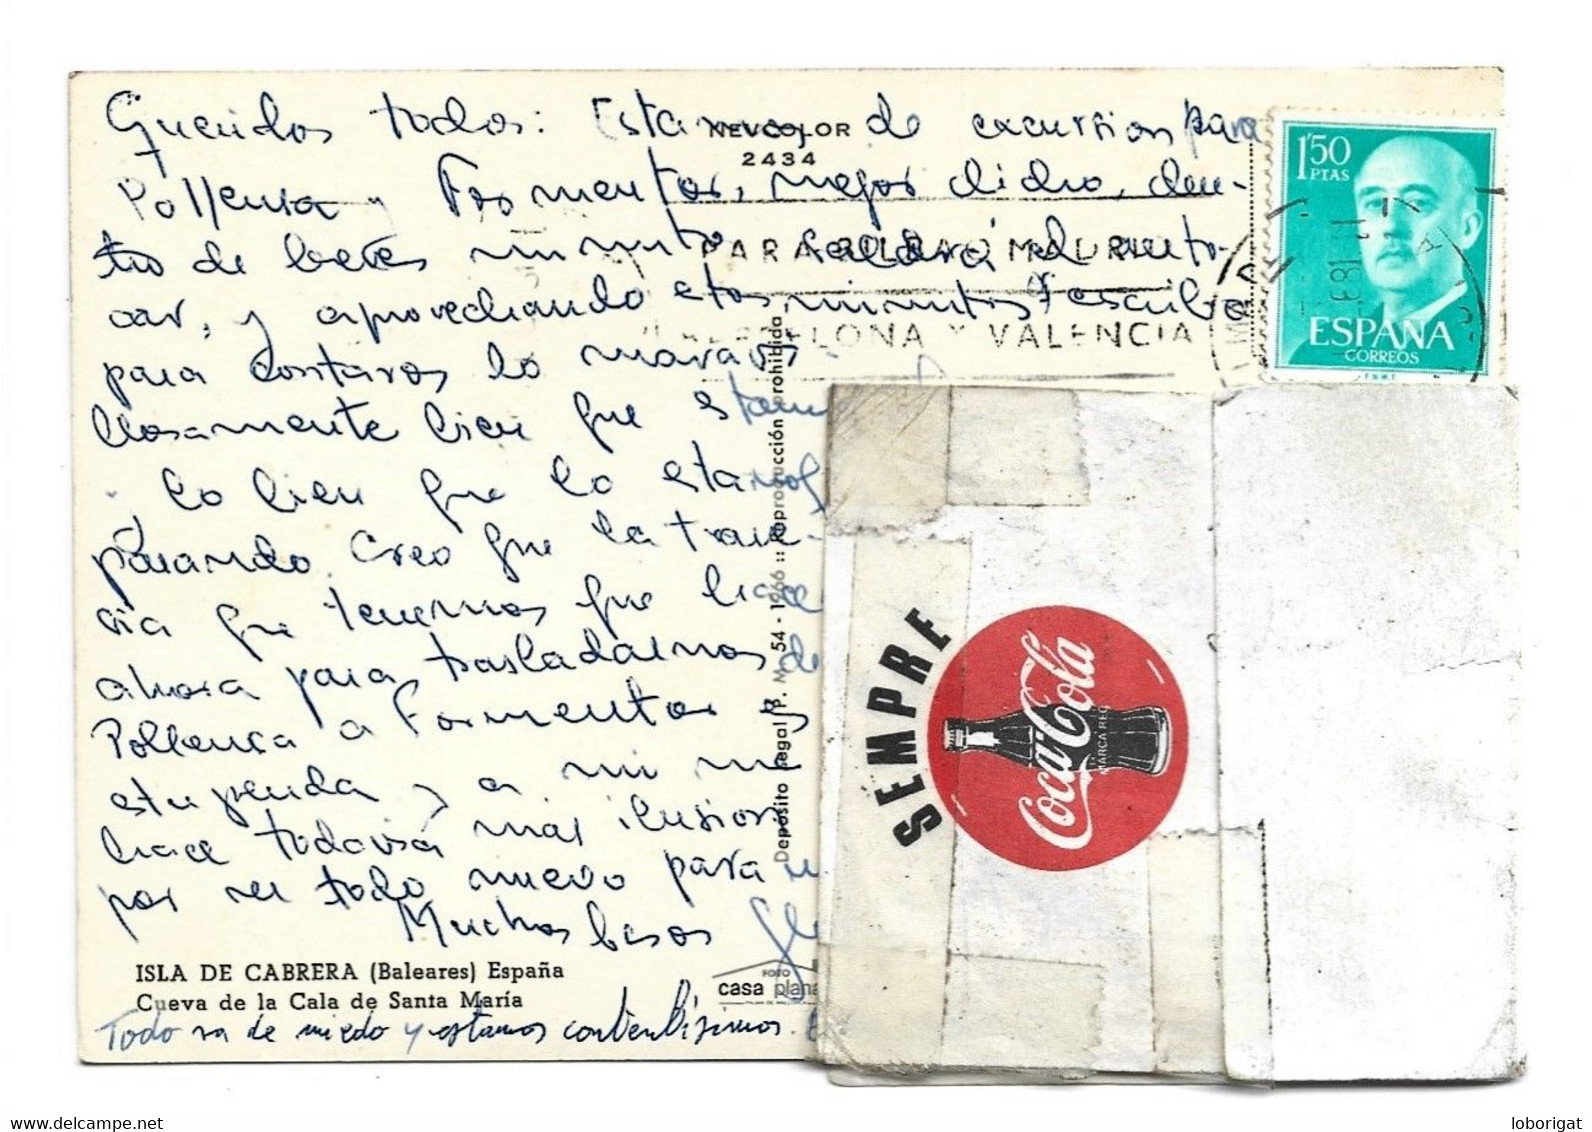 Queridos todos: Estamos de excursion para
Pollensa y Formentor, mejor dicho, den-
tro de breves minutos saldrá el auto-
car, y aprovechando estos minutos escribo
para contaros lo maravi-
llosamente bien que estam
y lo bien que lo estamos
pasando. Creo que la trave-
sia que tenemos que hace
ahora para trasladarnos de
Pollensa a Formentor es
estupenda y a mi me
hace todavia mas ilusion
por ser todo nuevo para
Muchos besos
NEVCOLOR
2434
PARA BILBAO MADRID
BARCELONA Y VALENCIA
1'50
PTAS
ESPAÑA
CORREOS
F.N.M.T
Depósito legal B. M. 54 - 1966 :: Reproducción prohibida
SEMPRE
Coca-Cola
MARCA REG
ISLA DE CABRERA (Baleares) España
Cueva de la Cala de Santa María
FOTO
casa plana
PALMA DE MALLORCA
Todo va de miedo y estamos contentísimos.
loborigat